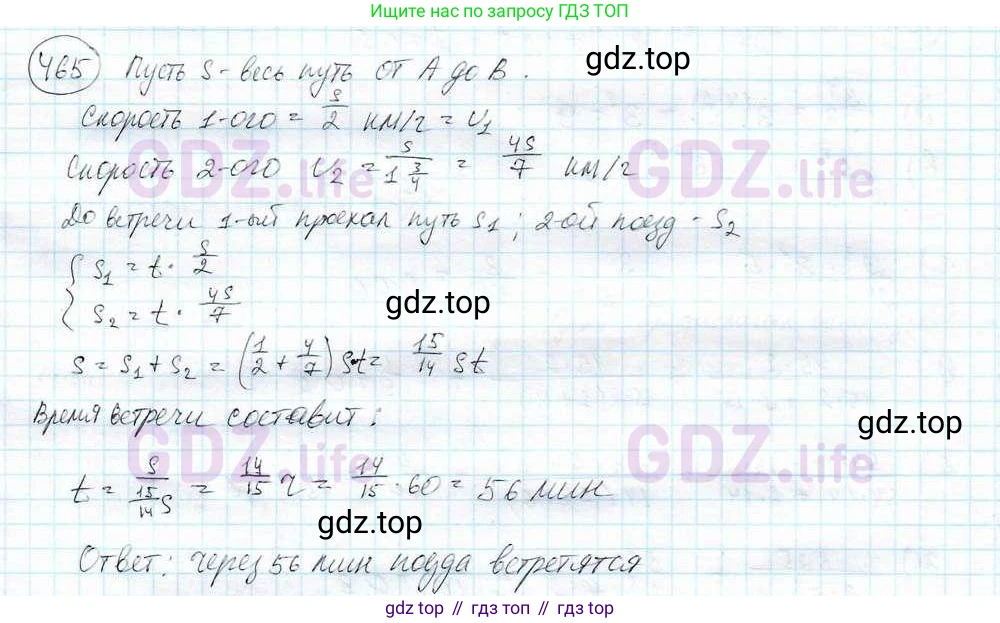 Ищите нас по запросу ГДЗ ТОП
465 Пусть S - весь путь от А до В.
gdz.top
Скорость 1-ого = S/2 км/г = υ1
Скорость 2-ого υ2 = S/1 3/4 = 4S/7 км/г
GDZ.life GDZ.life
До встречи 1-ый проехал путь S1; 2-ой поезд - S2
{ S1 = t · S/2
S2 = t · 4S/7
gdz.top
S = S1 + S2 = (1/2 + 4/7) S·t = 15/14 St
Время встречи составит:
gdz.top
GDZ.life GDZ.life
t = S/(15/14 S) = 14/15 г = 14/15 · 60 = 56 мин
gdz.top
Ответ: через 56 мин поезда встретятся
gdz.top // гдз топ // gdz.top